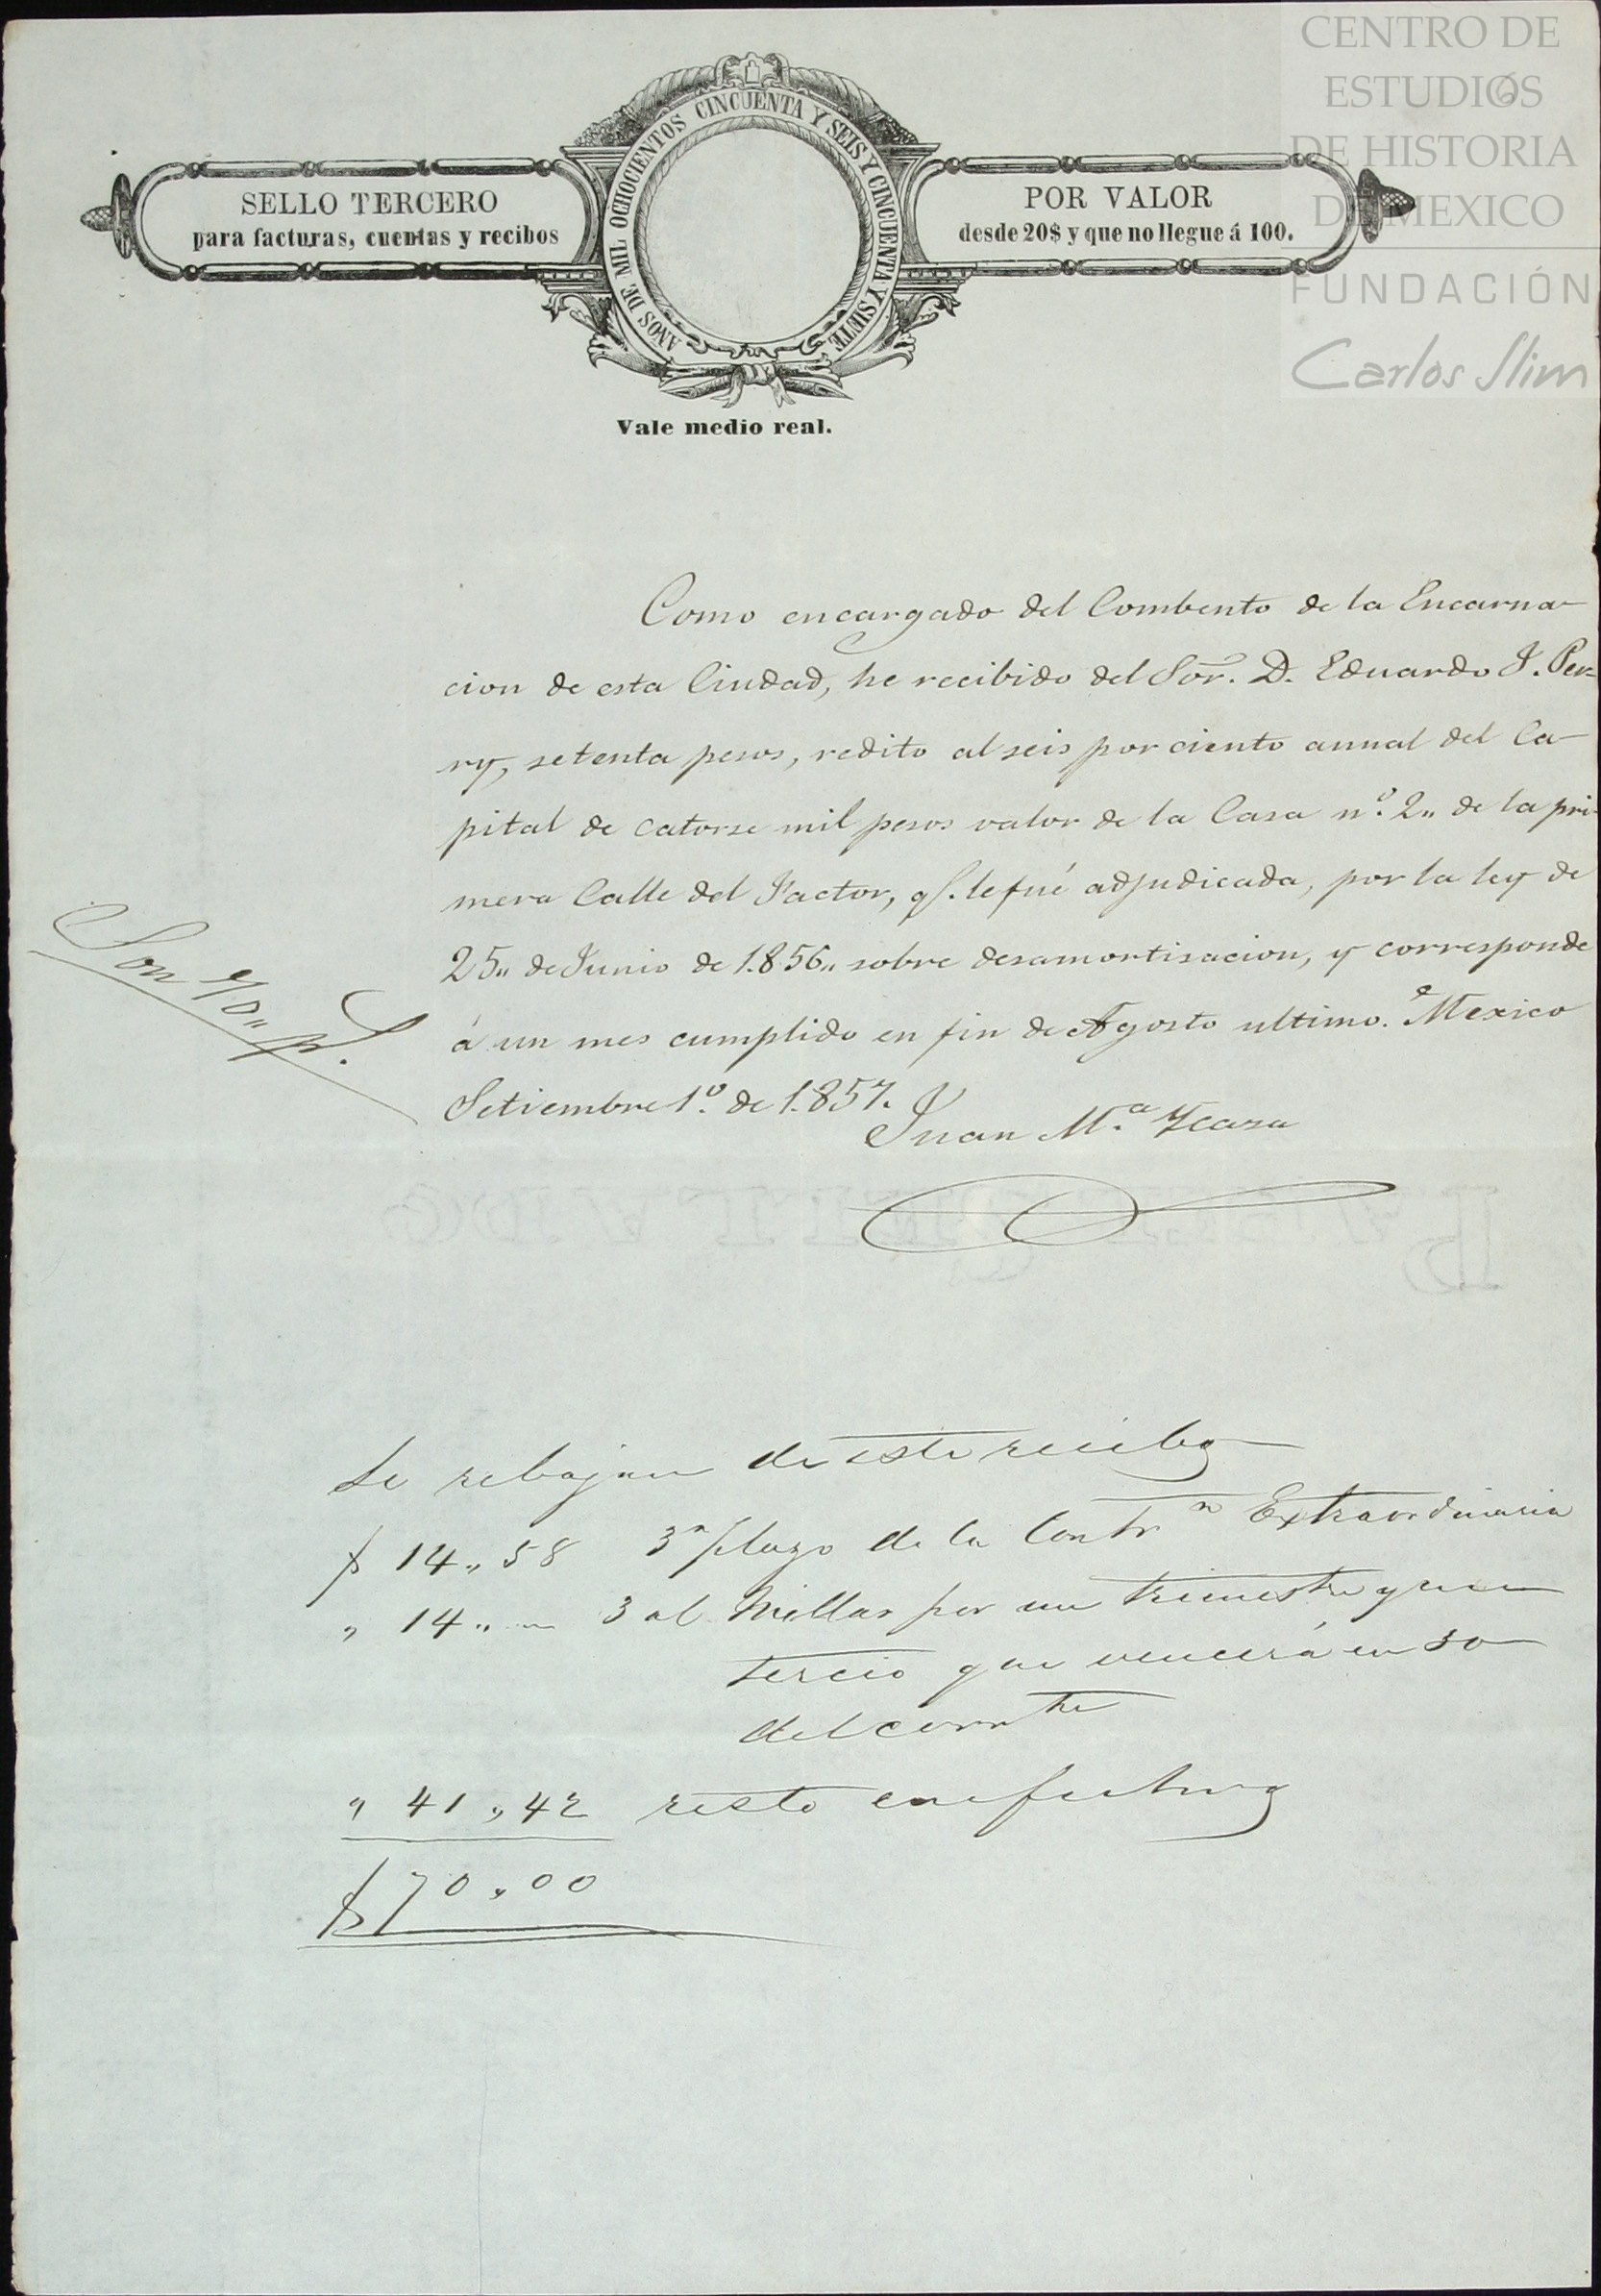 CENTRO DE
ESTUDIOS
DE HISTORIA
DE MEXICO
FUNDACIÓN
Carlos Slim
SELLO TERCERO
para facturas, cuentas y recibos
AÑOS DE MIL OCHOCIENTOS CINCUENTA Y SEIS Y CINCUENTA Y SIETE
POR VALOR
desde 20$ y que no llegue á 100.
Vale medio real.
Como encargado del Combento de la Encarna-
cion de esta Ciudad, he recibido del Sor. D. Eduardo J. Per-
ry, setenta pesos, redito al seis por ciento annal del Ca-
pital de catorse mil pesos valor de la Casa n.º 2„ de la pri-
mera Calle del Factor, q.e le fué adjudicada, por la ley de
25„ de Junio de 1.856„ sobre desamortisacion, y corresponde
á un mes cumplido en fin de Agosto ultimo. Mexico
Setiembre 1.º de 1.857.
Juan M.a Ycaza
Son 70„ p.
Se rebajan de este recibo
$ 14„ 58 3.r plazo de la Contr.n Extraordinaria
„ 14„ 3 al Millar por un trimestre y un
tercio que vencerá en 30
del corr.te
„ 41 „ 42 resto en efectivo
$ 70 „ 00